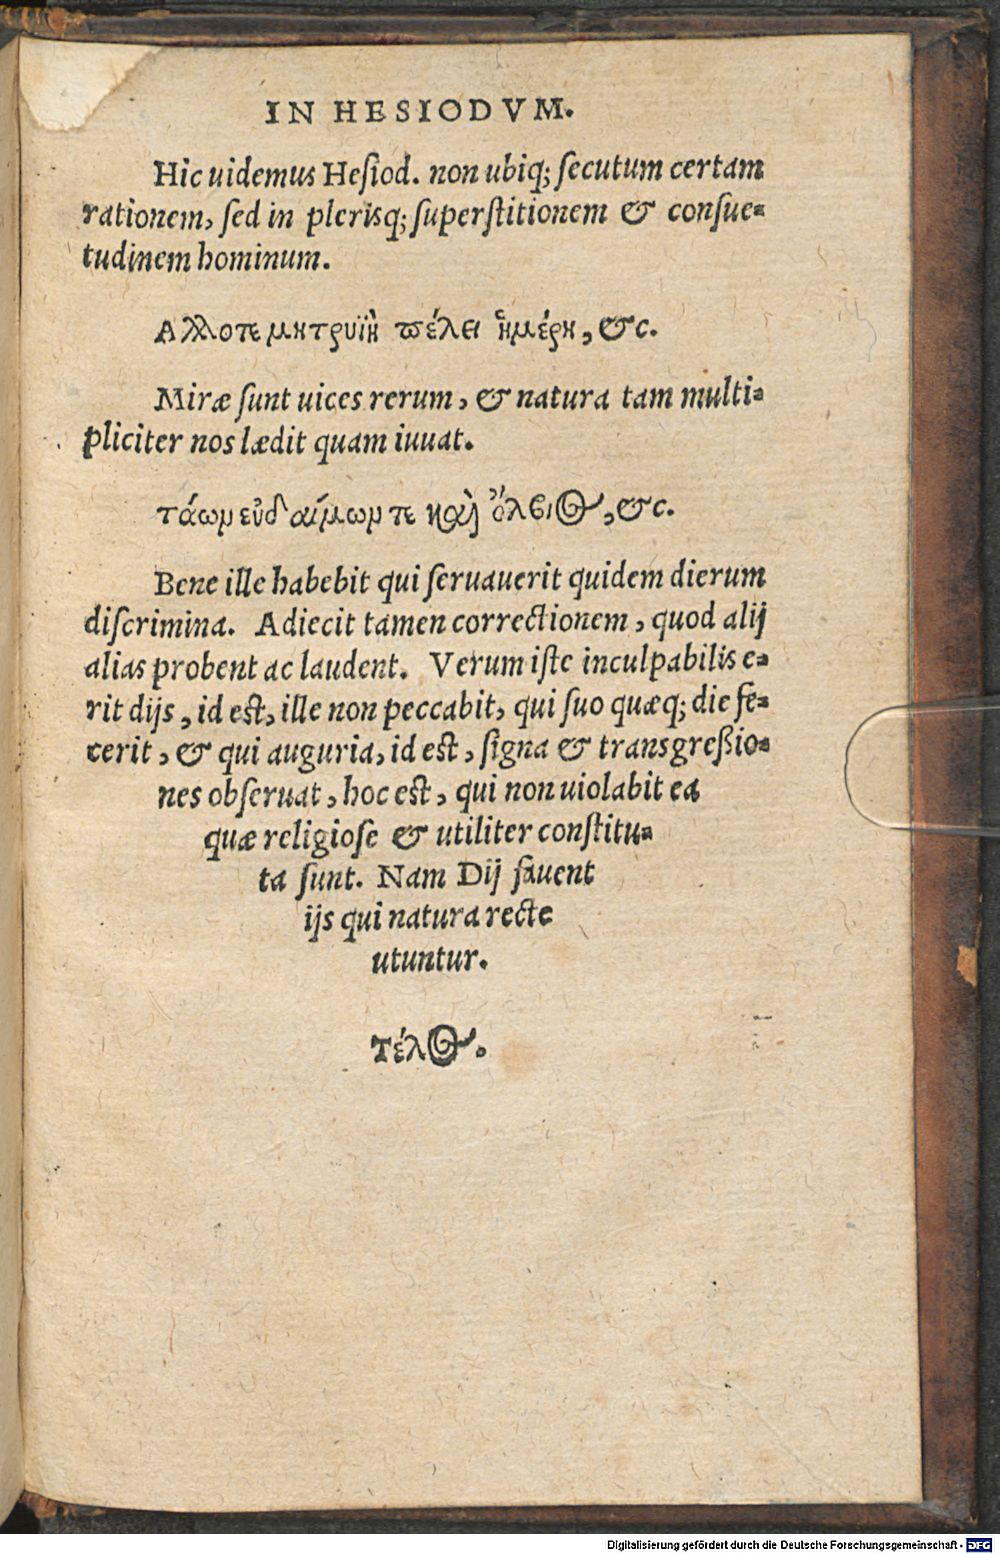 IN HESIODVM.
Hic uidemus Hesiod. non ubiq; secutum certam
rationem, sed in plerisq; superstitionem & consue-
tudinem hominum.
Αλλοτε μητρυϊὴ πέλει ἡμέρη, &c.
Miræ sunt uices rerum, & natura tam multi-
pliciter nos lædit quam iuuat.
τάων εὐδαίμων τε καὶ ὄλβιος, &c.
Bene ille habebit qui seruauerit quidem dierum
discrimina. Adiecit tamen correctionem, quod alij
alias probent ac laudent. Verum iste inculpabilis e-
rit dijs, id est, ille non peccabit, qui suo quæq; die fe-
cerit, & qui auguria, id est, signa & transgreßio-
nes obseruat, hoc est, qui non uiolabit ea
quæ religiose & utiliter constitu-
ta sunt. Nam Dij fauent
ijs qui natura recte
utuntur.
Τέλος.
Digitalisierung gefördert durch die Deutsche Forschungsgemeinschaft - DFG